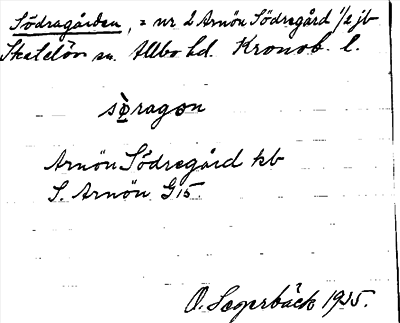 Södragården, = nr 2 Arnön Södregård 1/2 jb
Skatelöv sn. Allbo hd. Kronob. l.
sö̀ragon
Arnön Södregård kb
S. Arnön G15.
O. Segerbäck 1925.